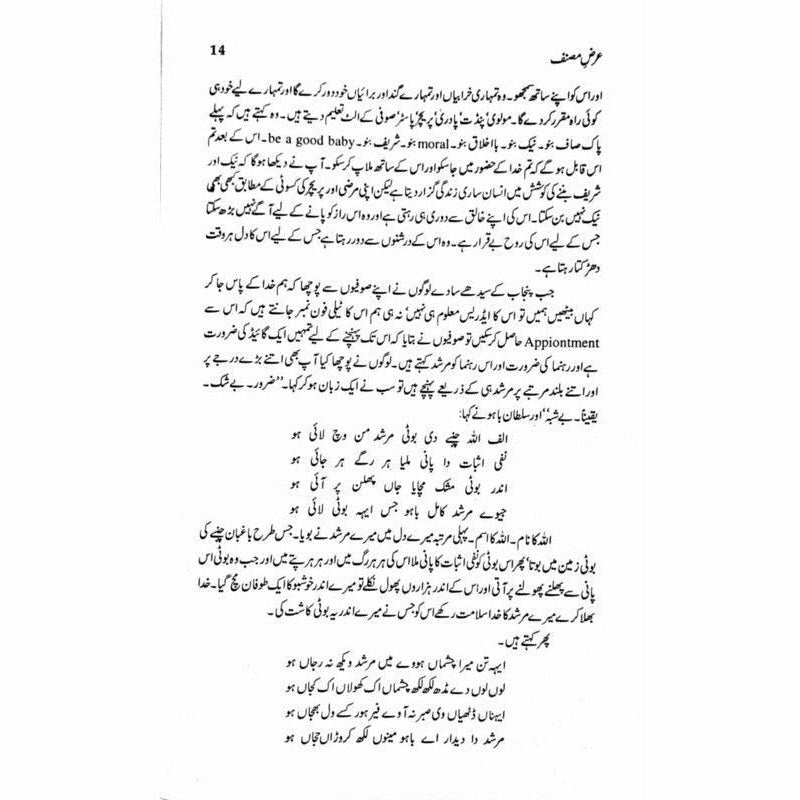 عرض مصنف 14
اور اس کو اپنے ساتھ سمجھو۔ وہ تمہاری خرابیاں اور تمہارے گند اور برائیاں خود دور کرے گا اور تمہارے لیے خود ہی
کوئی راہ مقرر کر دے گا۔ مولوی‘ پنڈت‘ پادری‘ پریچر‘ پاسٹر‘ صوفی کے الٹ تعلیم دیتے ہیں۔ وہ کہتے ہیں کہ پہلے
پاک صاف بنو۔ نیک بنو۔ بااخلاق بنو۔ moral بنو۔ شریف بنو۔ be a good baby۔ اس کے بعد تم
اس قابل ہو گے کہ تم خدا کے حضور میں جا سکو اور اس کے ساتھ ملاپ کر سکو۔ آپ نے دیکھا ہوگا کہ نیک اور
شریف بننے کی کوشش میں انسان ساری زندگی گزار دیتا ہے لیکن اپنی مرضی اور پریچر کی کسوٹی کے مطابق کبھی بھی
نیک نہیں بن سکتا۔ اس کی اپنے خالق سے دوری ہی رہتی ہے اور وہ اس راز کو پانے کے لیے آگے نہیں بڑھ سکتا
جس کے لیے اس کی روح بے قرار ہے۔ وہ اس کے درشنوں سے دور رہتا ہے جس کے لیے اس کا دل ہر وقت
دھڑکتا رہتا ہے۔
جب پنجاب کے سیدھے سادے لوگوں نے اپنے صوفیوں سے پوچھا کہ ہم خدا کے پاس جا کر
کہاں بیٹھیں ہمیں تو اس کا ایڈریس معلوم ہی نہیں‘ نہ ہی ہم اس کا ٹیلی فون نمبر جانتے ہیں کہ اس سے
Appiontment حاصل کر سکیں تو صوفیوں نے بتایا کہ اس تک پہنچنے کے لیے تمہیں ایک گائیڈ کی ضرورت
ہے اور رہنما کی ضرورت اور اس رہنما کو مرشد کہتے ہیں۔ لوگوں نے پوچھا کیا آپ بھی اتنے بڑے درجے پر
اور اتنے بلند مرتبے پر مرشد ہی کے ذریعے پہنچے ہیں تو سب نے ایک زبان ہو کر کہا۔ ”ضرور۔ بے شک۔
یقیناً۔ بے شبہ‘‘ اور سلطان باہو نے کہا:
الف اللہ چنبے دی بوٹی مرشد من وچ لائی ہو
نفی اثبات دا پانی ملیا ہر رگے ہر جائی ہو
اندر بوٹی مشک مچایا جاں پھلن پر آئی ہو
جیوے مرشد کامل باہو جس ایہہ بوٹی لائی ہو
اللہ کا نام۔ اللہ کا اسم۔ پہلی مرتبہ میرے دل میں میرے مرشد نے بویا۔ جس طرح باغبان چنبے کی
بوٹی زمین میں بوتا‘ پھر اس بوٹی کو نفی اثبات کا پانی ملا اس کی ہر ہر رگ میں اور ہر ہر پتے میں اور جب وہ بوٹی اس
پانی سے پھلنے پھولنے پر آئی اور اس کے اندر ہزاروں پھول نکلے تو میرے اندر خوشبو کا ایک طوفان مچ گیا۔ خدا
بھلا کرے میرے مرشد کا خدا سلامت رکھے اس کو جس نے میرے اندر یہ بوٹی کاشت کی۔
پھر کہتے ہیں۔
ایہہ تن میرا چشماں ہووے میں مرشد ویکھ نہ رجاں ہو
لوں لوں دے مڈھ لکھ لکھ چشماں اک کھولاں اک کجاں ہو
ایہناں ڈٹھیاں وی صبر نہ آوے فیر ہور کسے ول بھجاں ہو
مرشد دا دیدار اے باہو مینوں لکھ کروڑاں حجاں ہو